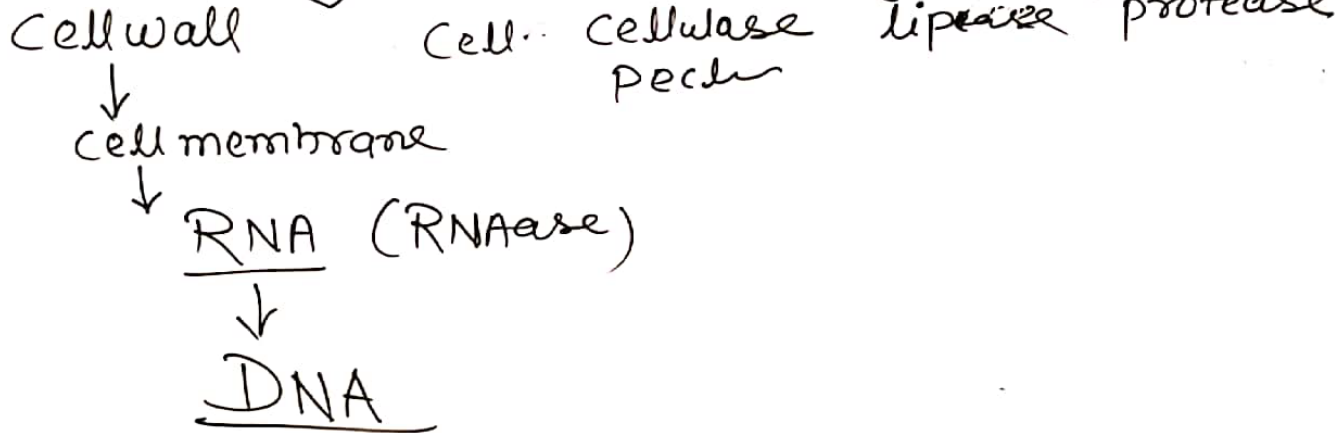 Cellwall Cell.. Cellulase protease
↓ pec
cell membrane
↓
RNA (RNAase)
↓
DNA